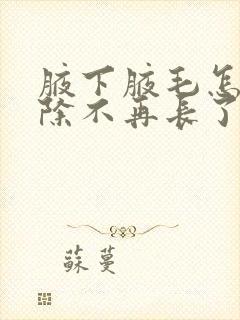 腋下腋毛怎
除不再长了
蘇蔓